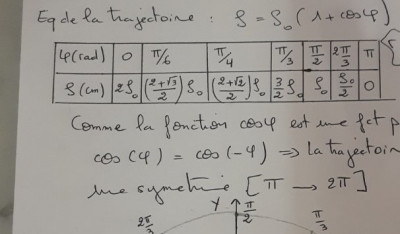 Eq de la trajectoire : ρ = ρ₀ (1 + cosφ)
φ(rad) 0 π/6 π/4 π/3 π/2 2π/3 π
ρ(cm) 2ρ₀ ((2+√3)/2) ρ₀ ((2+√2)/2) ρ₀ 3/2 ρ₀ ρ₀ ρ₀/2 0
Comme la fonction cosφ est une fct p
cos(φ) = cos(-φ) ⇒ la trajectoir
une symetrie [π → 2π]
Y π/2
2π/3 π/3